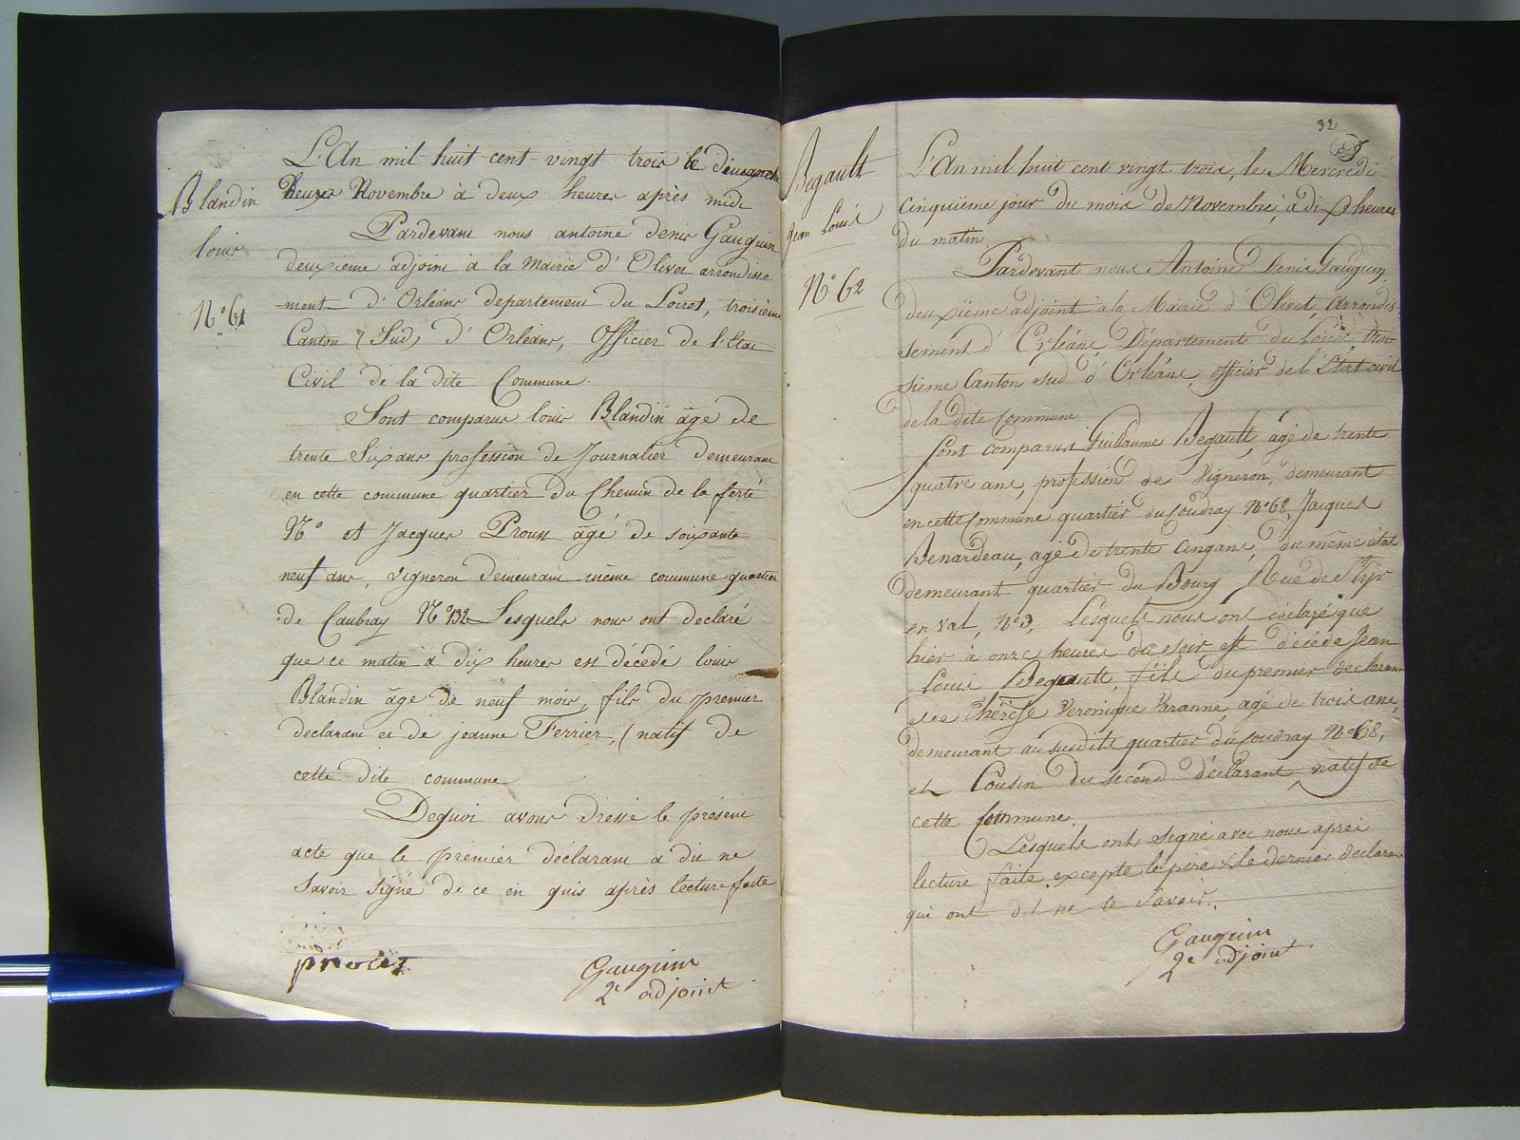 Blandin
louis
N° 61
L'An mil huit cent vingt trois le dimanche
Novembre à deux heures après midi
Pardevant nous antoine denis Gauguin
deuxieme adjoint à la Mairie d'Olivet arrondisse
ment d'Orléans departement du Loiret, troisième
Canton (Sud) d'Orléans, Officier de l'Etat
Civil de la dite Commune.
Sont comparus louis Blandin âge de
trente Six ans profession de Journalier demeurant
en cette commune quartier du Chemin de la ferté
N° et Jacques Proust âgé de soixante
neuf ans, vigneron demeurant même commune quartier
de Caubray N° 132 Lesquels nous ont declaré
que ce matin à dix heures est décédé louis
Blandin âge de neuf mois, fils du premier
declarant et de jeanne Ferrier, (natif de
cette dite commune
Dequoi avons dressé le présent
acte que le premier déclarant a dit ne
savoir signé de ce en quis après lecture faite
Gauguin
2e adjoint
32
Begault
Jean Louis
N° 62
L'An mil huit cent vingt trois, le Mercredi
Cinquième jour du mois de Novembre, à dix heures
du matin
Pardevant nous Antoine Denis Gauguin,
deuxième adjoint à la Mairie d'Olivet, arrondis
sement d'Orléans, Département du Loiret, troi
sième Canton sud d'Orléans, officier de l'Etat civil
de la dite Commune
Sont comparus Guillaume Begault, agé de trente
quatre ans, profession de Vigneron, demeurant
en cette Commune quartier du Coudray N° 68, Jacques
Benardeau, agé de trente cinq ans, du même état
demeurant quartier du Bourg Rue de St
en val, N° 3, Lesquels nous ont déclaré que
hier à onze heures du soir est décédé Jean
Louis Begault fils du premier déclarant
et de Thérèse Veronique Varanne, agé de trois ans,
demeurant au susdit quartier du Coudray N° 68,
et Cousin du second déclarant, natif de
cette Commune.
Lesquels ont signé avec nous après
lecture faite excepté le père et le dernier déclarant
qui ont dit ne le savoir.
Gauguin
2e adjoint